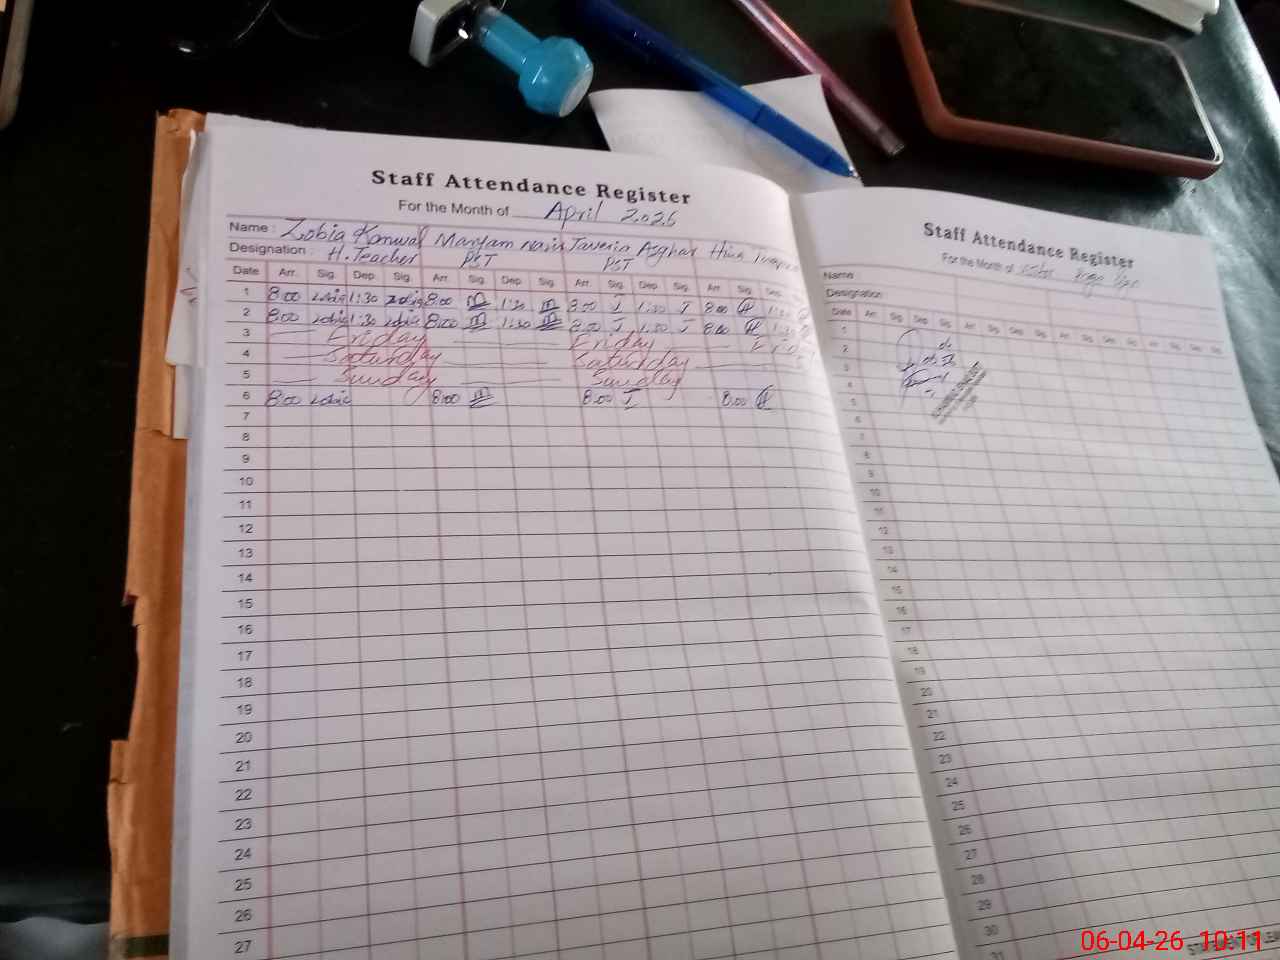 Staff Attendance Register
For the Month of April 2026
Name : Zobia Kanwal Maryam Javeria Asghar Hina
Designation : H.Teacher PST PST
Date Arr. Sig. Dep. Sig. Arr. Sig. Dep. Sig. Arr. Sig. Dep. Sig. Arr. Sig. Dep.
1 8:00 zobia 1:30 zobia 8:00 m 1:30 m 8:00 J 1:30 J 8:00 H
2 8:00 zobia 1:30 zobia 8:00 m 1:30 m 8:00 J 1:30 J 8:00 H
3 Friday Friday
4 Saturday Saturday
5 Sunday Sunday
6 8:00 zobia 8:00 m 8:00 J 8:00 H
7
8
9
10
11
12
13
14
15
16
17
18
19
20
21
22
23
24
25
26
27
Staff Attendance Register
For the Month of
Name
Designation
Date Arr. Sig. Dep. Sig. Arr. Sig. Dep. Sig. Arr. Sig. Dep. Sig.
1
2
3
4
5
6
7
8
9
10
11
12
13
14
15
16
17
18
19
20
21
22
23
24
25
26
27
28
29
30
31
06-04-26 10:11